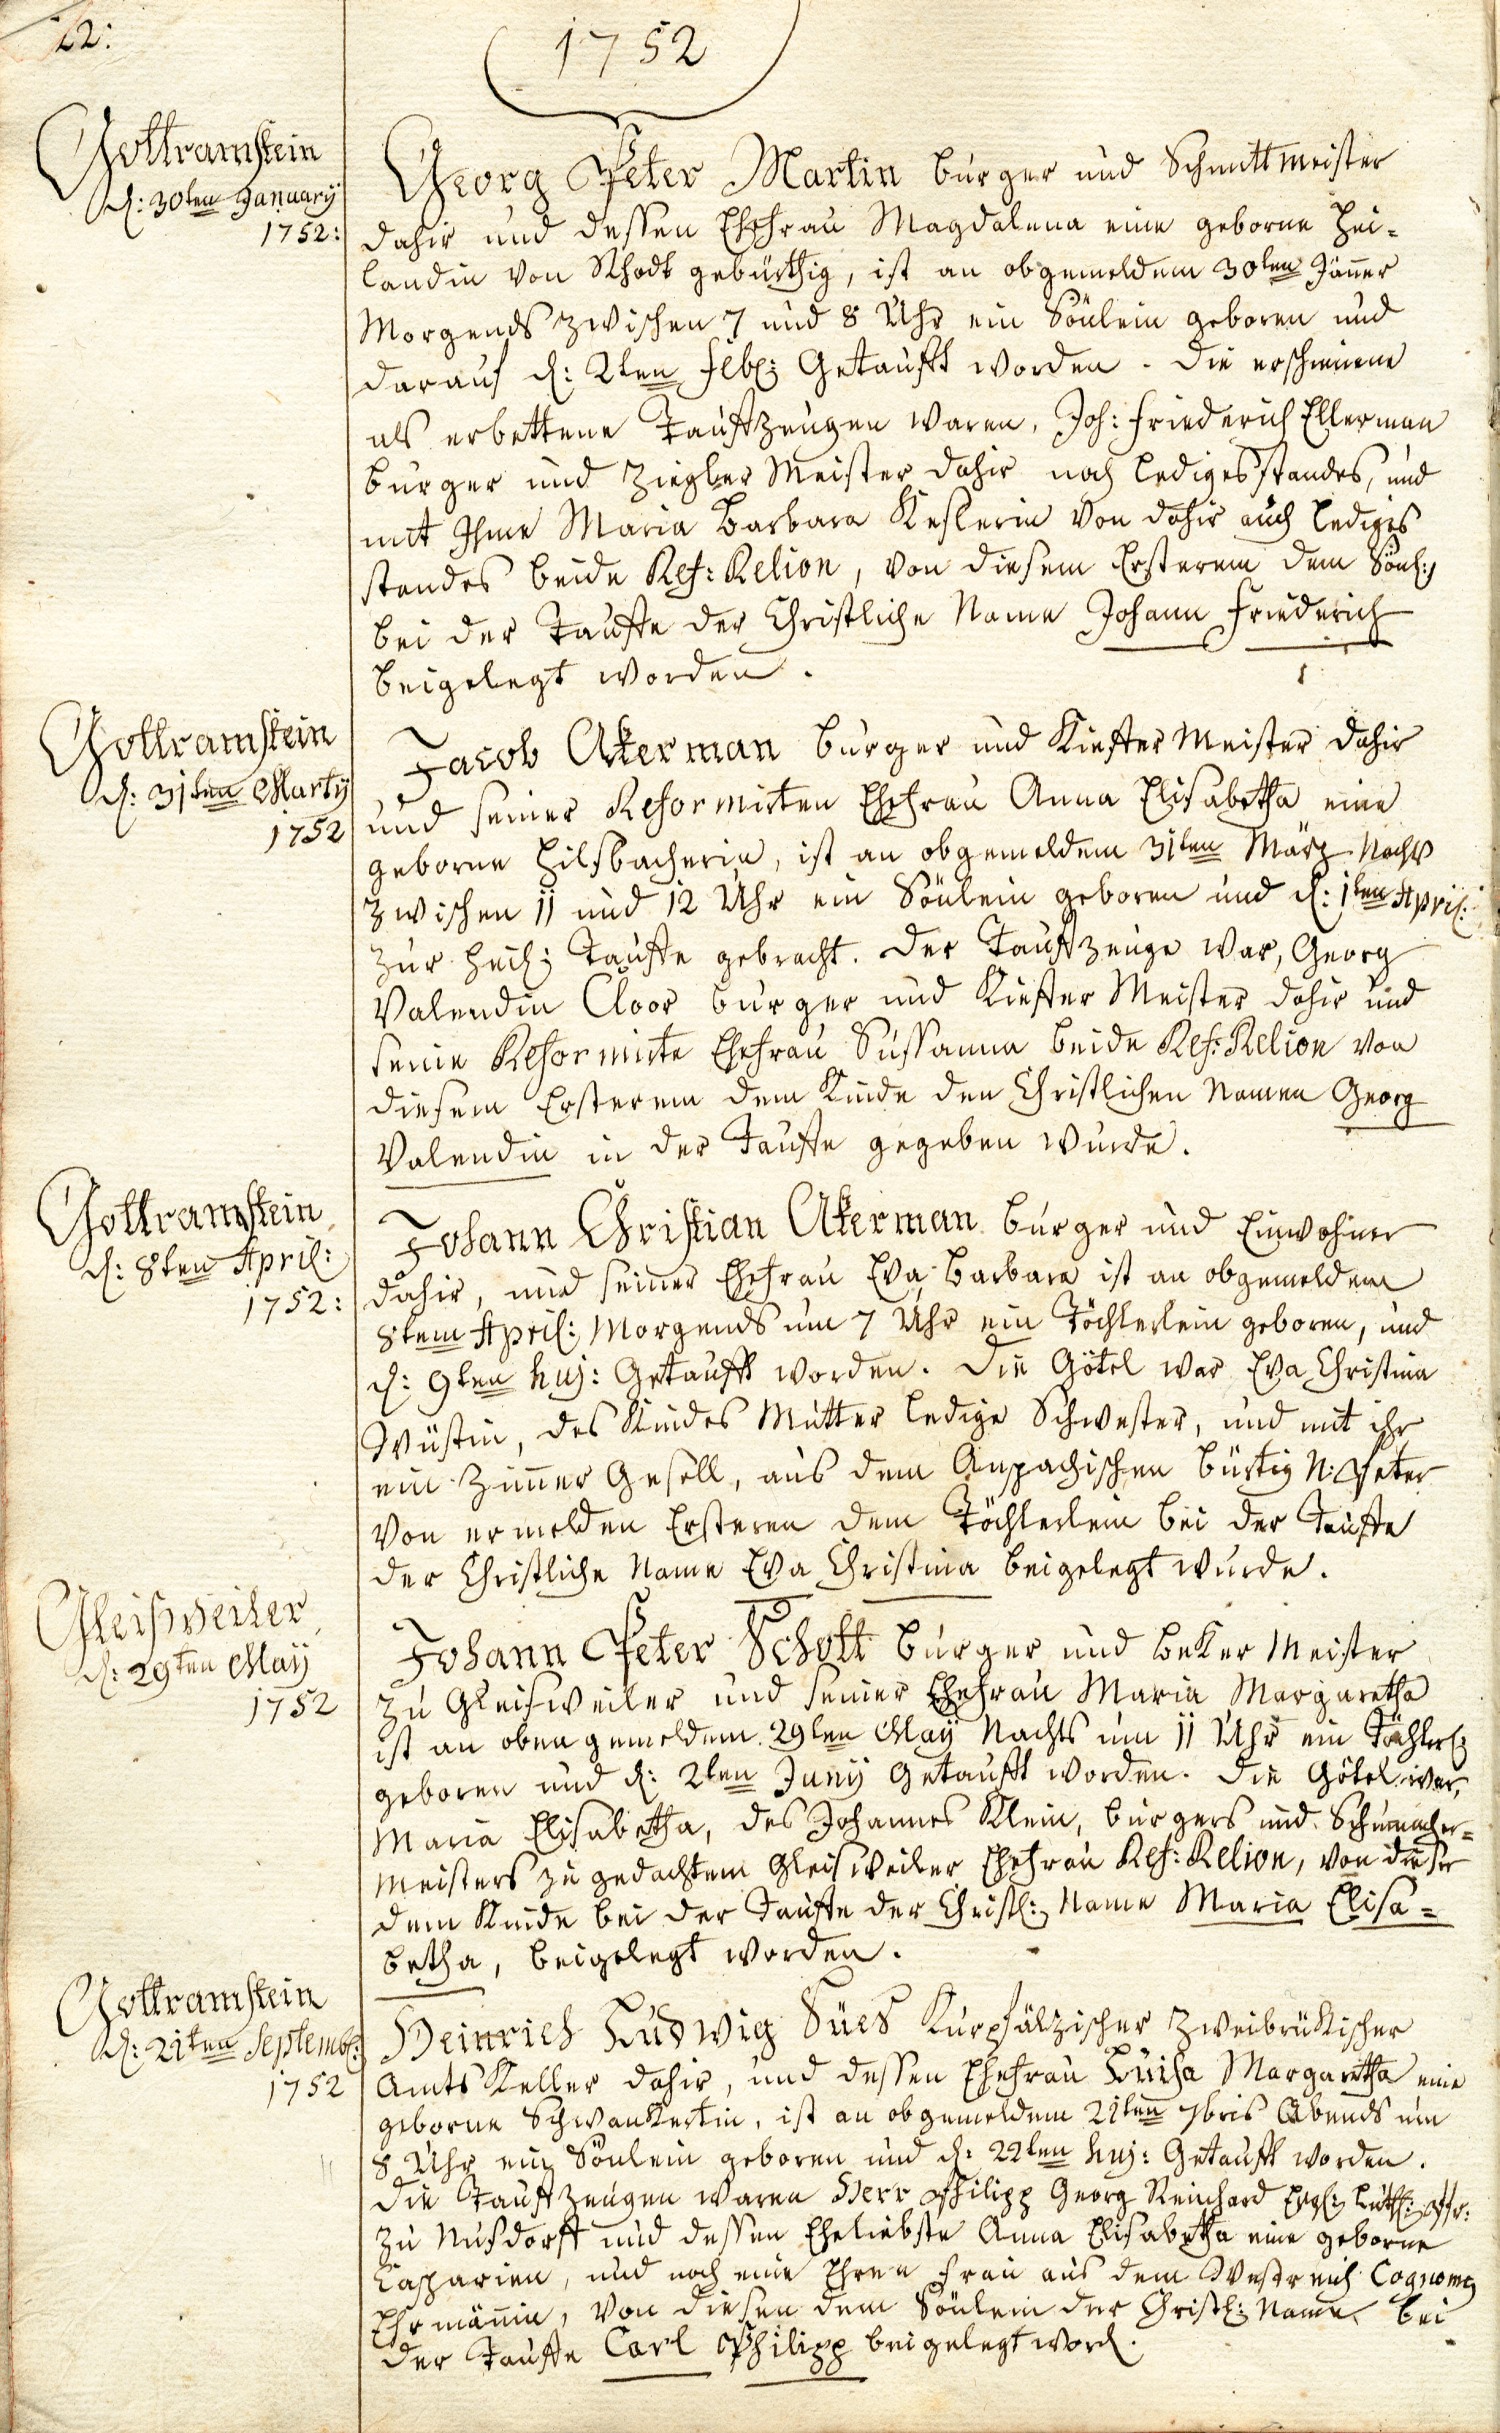 22:
1752
Gottramstein
d: 30ten January
1752:
Georg Peter Martin burger und Schmittmeister
dahir und dessen Ehefrau Magdalena eine geborne Hei-
landin von Rhodt gebürthig, ist an obgemeldem 30ten Jänner
Morgends zwischen 7 und 8 Uhr ein Sönlein geboren und
darauf d: 2ten Feb: Getaufft worden. die erschienene
als erbettene Tauffzeugen waren, Joh: Friederich Ellerman
burger und Ziegler Meister dahir noch ledigesstandes, und
mit Ihme Maria Barbara Keslerin von dahir auch lediges
standes beide Ref: Relion, von diesem Ersterem dem Sönl:
bei der Tauffe der Christliche Name Johann Friederich
beigelegt worden.
Gottramstein
d: 31ten Marty
1752
Jacob Akerman burger und Kieffer Meister dahir
und seiner Reformirten Ehefrau Anna Elisabetha eine
geborne Hilsbacherin, ist an obgemeldem 31ten März Nachts
zwischen 11 und 12 Uhr ein Sönlein geboren und d: 1ten April:
zur heil: Tauffe gebracht. der Tauffzeuge war, Georg
Valendin Cloor burger und Kieffer Meister dahir und
seine Reformirte Ehefrau Sussanna beide Ref: Relion von
diesem Ersterem dem Kinde den Christlichen Namen Georg
Valendin in der Tauffe gegeben wurde.
Gottramstein
d: 8ten April:
1752:
Johann Christian Akerman burger und Einwohner
dahir, und seiner Ehefrau Eva Barbara ist an obgemeldem
8tem April: Morgends um 7 Uhr ein Töchterlein geboren, und
d: 9ten huj: Getaufft worden. Die Götel war Eva Christina
Wüstin, des Kindes Mutter ledige Schwester, und mit ihr
ein Zimer Gesell, aus dem Anspachischen bürtig N: Peter
von ermelden Ersteren dem Töchterlein bei der Tauffe
der Christliche Name Eva Christina beigelegt wurde.
Gleisweiler
d: 29ten May
1752
Johann Peter Schott burger und beker Meister
zu Gleisweiler und seiner Ehefrau Maria Margaretha
ist an oben gemeldem 29ten May Nachts um 11 Uhr ein Töchterl:
geboren und d: 2ten Juny Getaufft worden. Die Götel war,
Maria Elisabetha, des Johannes Klein, burgers und Schumacher-
meisters zu gedachtem Gleisweiler Ehefrau Ref: Relion, von dieser
dem Kinde bei der Tauffe der Christl: Name Maria Elisa-
betha, beigelegt worden.
Gottramstein
d: 21ten Septemb:
1752
Heinrich Ludwig Sües Kurpfälzischer Zweibrükischer
Amts Keller dahir, und dessen Ehefrau Luisa Margaretha eine
geborne Schwankertin, ist an obgemeldem 21ten 7bris Abends um
8 Uhr ein Sönlein geboren und d: 22ten huj: Getaufft worden.
Die Tauffzeugen waren Herr Philipp Georg Reinhard Luth: Pfr:
zu Nusdorff und dessen Eheliebste Anna Elisabetha eine geborne
Casparien, und noch eine Ehren Frau aus dem Westreich Cognomen
Ehrmännin, von diesen dem Sönlein der Christl: Name bei
der Tauffe Carl Philipp beigelegt word.